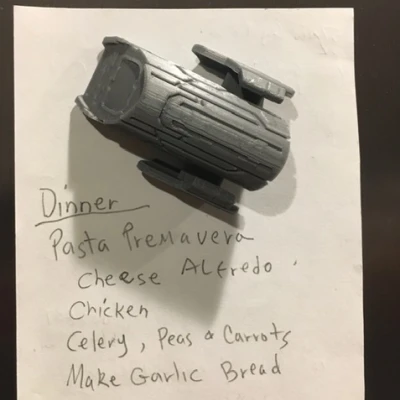 Dinner
Pasta Premavera
Cheese Alfredo.
Chicken
Celery, Peas & Carrots
Make Garlic Bread